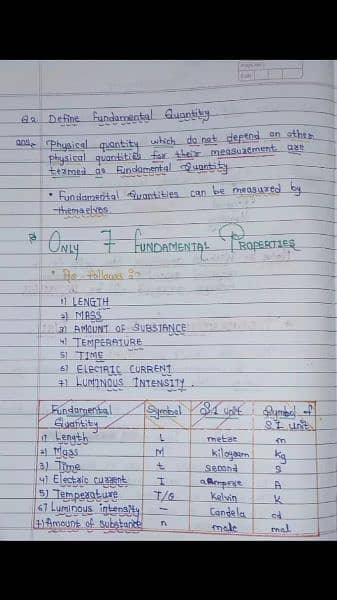 Q.2 Define Fundamental Quantity
ans:- Physical quantity which do not depend on other
physical quantities for their measurement are
termed as Fundamental Quantity
• Fundamental Quantities can be measured by
themselves.
ONLY 7 FUNDAMENTAL PROPERTIES
• As follows :-
1) LENGTH
2) MASS
3) AMOUNT OF SUBSTANCE
4) TEMPERATURE
5) TIME
6) ELECTRIC CURRENT
7) LUMINOUS INTENSITY.
Fundamental Quantity Symbol S.I unit Symbol of S.I unit
1) Length L metre m
2) Mass M kilogram kg
3) Time t second s
4) Electric current I ampere A
5) Temperature T/θ Kelvin K
6) Luminous intensity — Candela cd
7) Amount of substance n mole mol